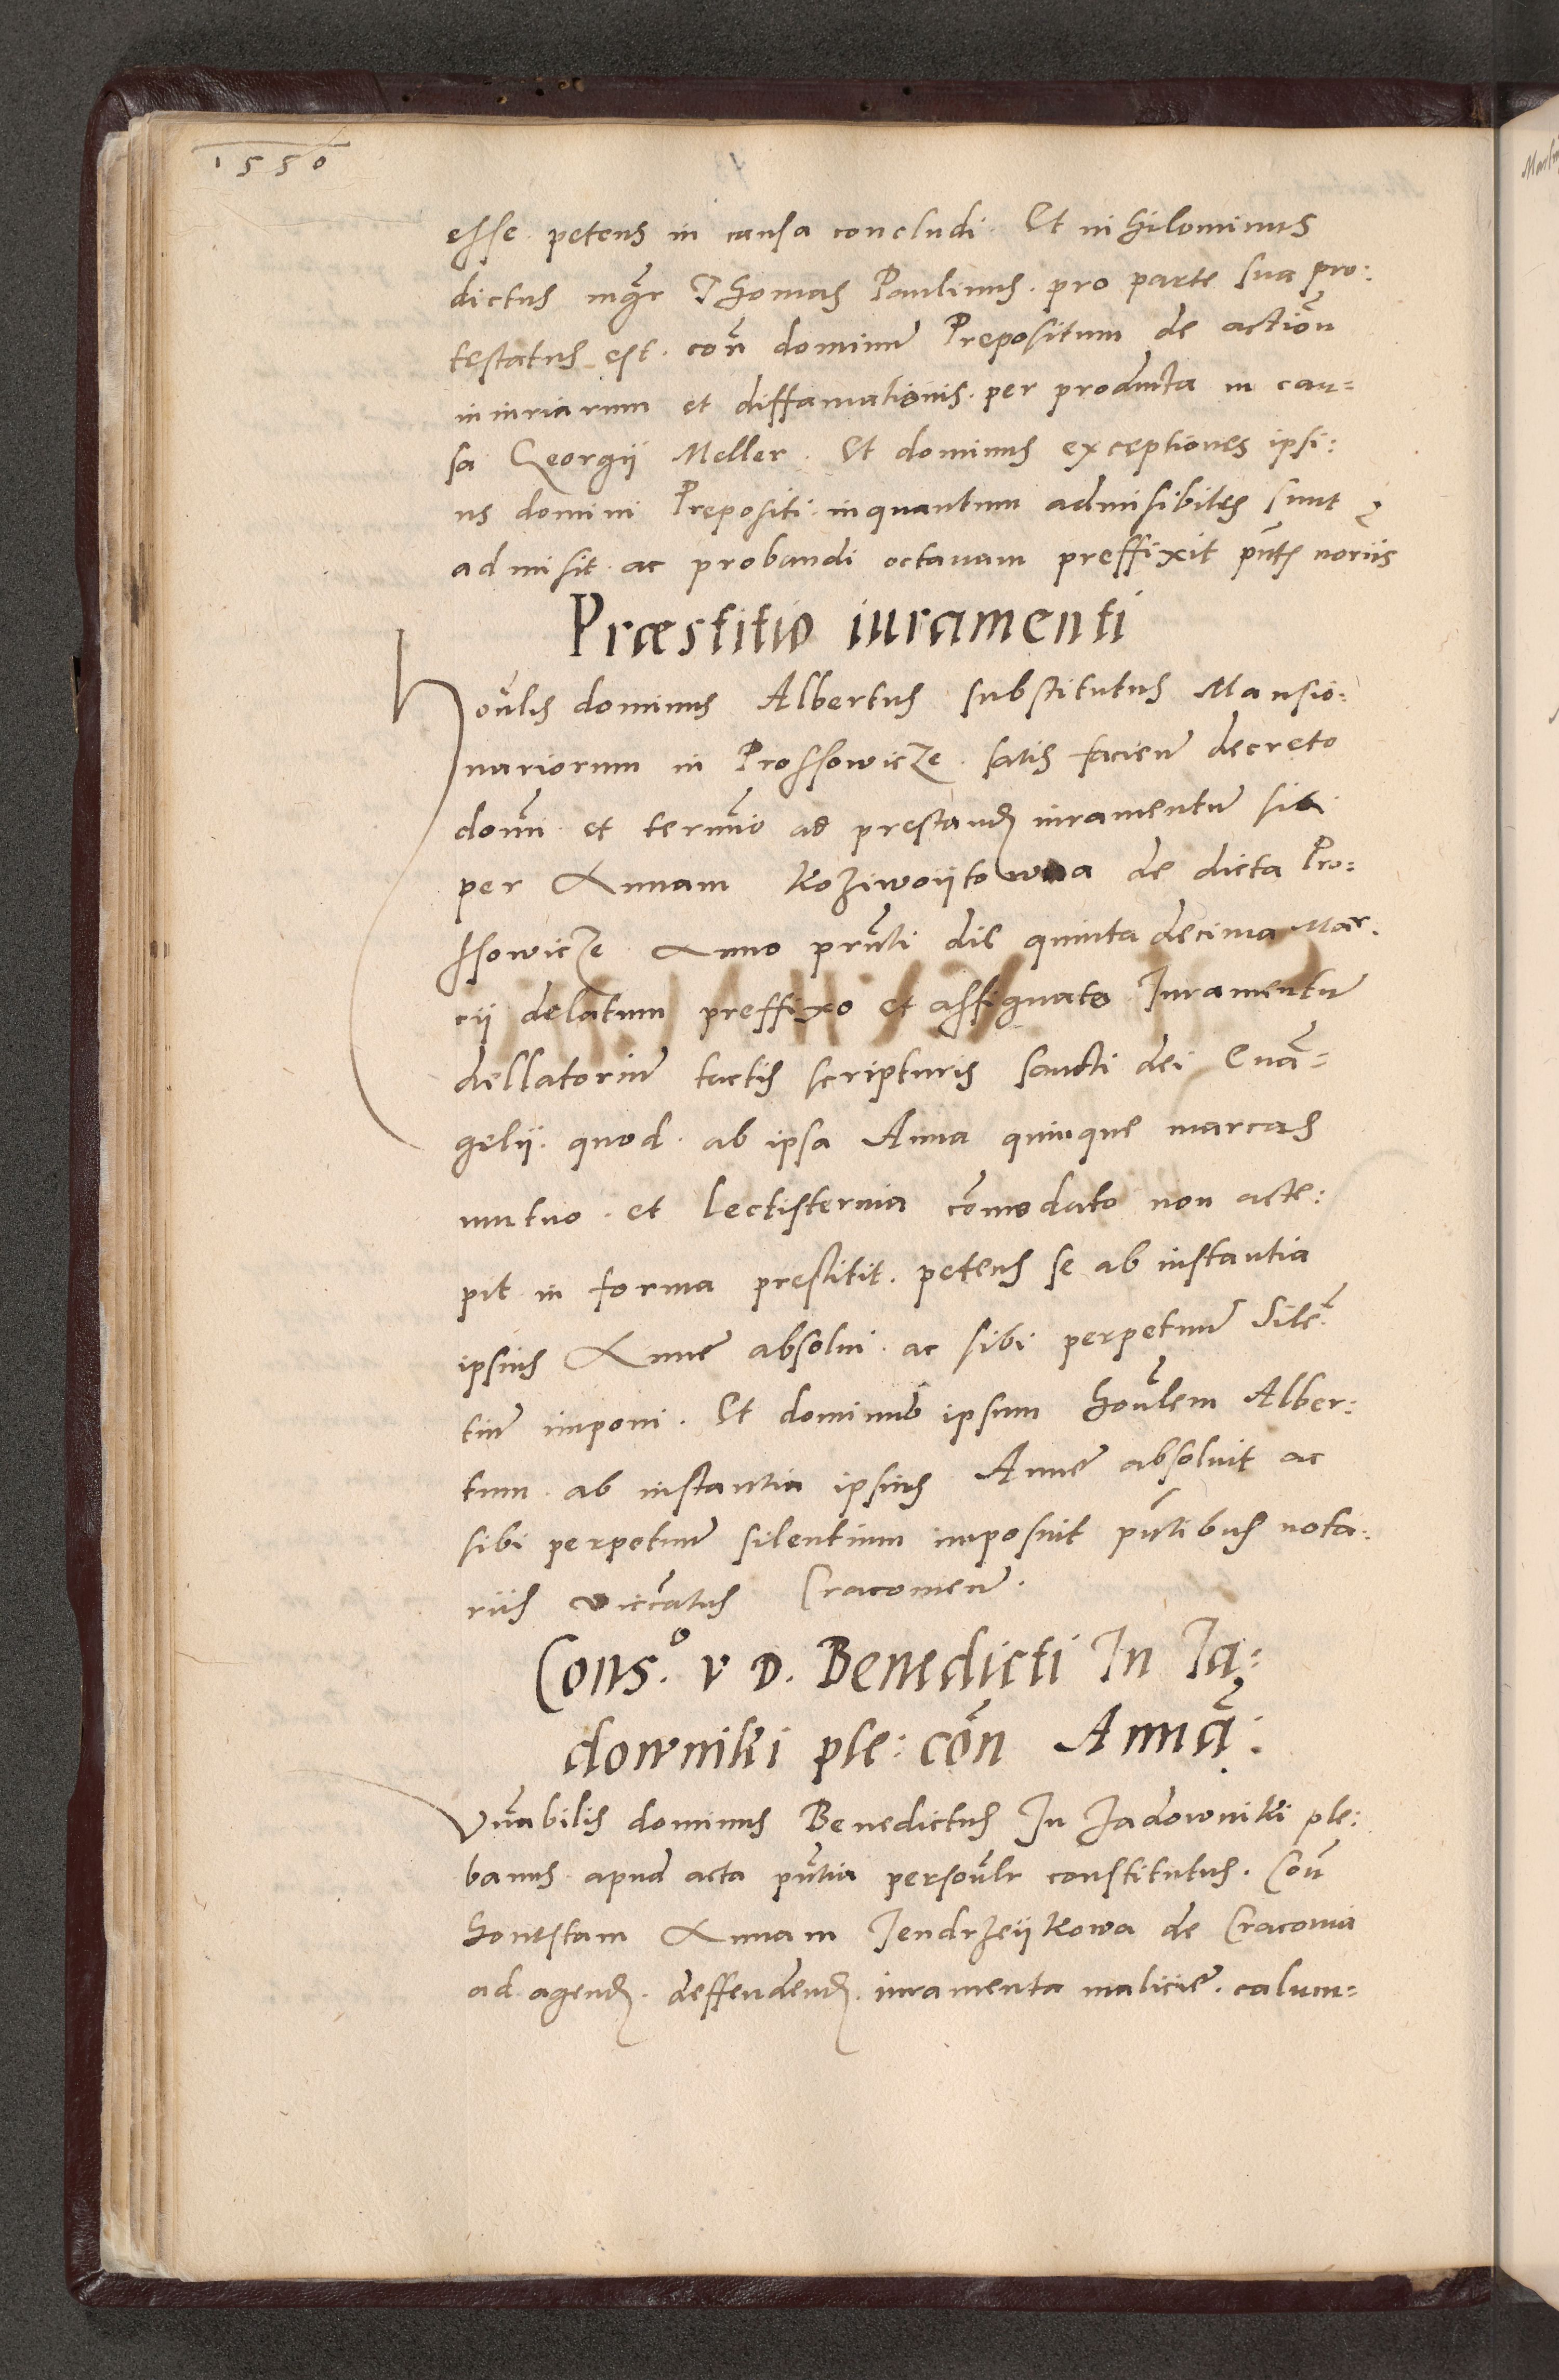 1550
esse petens in causa concludi. Et nihilominus
dictus mgr Thomas Paulinus pro parte sua pro:
testatus est. con̄ dominū Prepositum de action̄
iniuriarum et diffamationis. per producta in cau=
sa Georgii Meller. Et dominus exceptiones ipsi:
us domini Prepositi inquantum admisibiles sunt
admisit ac probandi octauam preffixit pn̄tƺ noriis
Præstitio iuramenti
Hon̄lis dominus Albertus substitutus Mansio:
nariorum in Prossowicze. satis facien̄ decreto
domī et termīo ad prestandƺ iuramentū sibi
per Annam Koziwoÿtowna de dicta Pro:
ssowicze Anno prn̄ti die quinta decima Mar.
cii delatum preffixo et assignato Iuramentū
dellatoriū tactis scripturis sancti dei Euā=
gelii. quod ab ipsa Anna quinque marcas
mutuo et lectisternia cōmodato non acce:
pit in forma prestitit. petens se ab instantia
ipsius Anne absolui. ac sibi perpetuū Silē
tiū imponi. Et dominus ipsum hon̄lem Alber:
tum ab instantia ipsius Anne absoluit ac
sibi perpetuū silentium imposuit pn̄tibus nota:
riis viccatus Cracouien̄.
Cons.º v D. Benedicti In Ia:
downiki ple: con̄ Annā:
Vn̄abilis dominus Benedictus In Jadowniki ple:
banus apud acta pn̄tia person̄lr constitutus. Con̄
honestam Annam Jendrzeÿkowa de Cracouia
ad agendƺ. deffendendƺ. iuramenta malicie. calum=